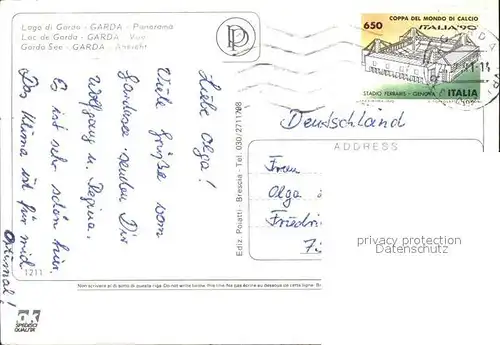 Lago di Garda - GARDA - Panorama
Lac de Garda - GARDA - Vue
Garda See - GARDA - Ansicht
Liebe Olga!
Viele Grüße vom
Gardasee senden Dir
Wolfgang u. Regina.
Es ist sehr schön hier.
Das Klima ist für mich
Optimal!
1211
Ediz. Poiatti - Brescia - Tel. 030/2711098
650
COPPA DEL MONDO DI CALCIO
ITALIA '90
STADIO FERRARIS - GENOVA
ITALIA
Deutschland
ADDRESS
Frau
Olga
Friedri
privacy protection
Datenschutz
Non scrivere al di sotto di questa riga
Do not write below this line
ok
SPEDISCI
QUALITA'